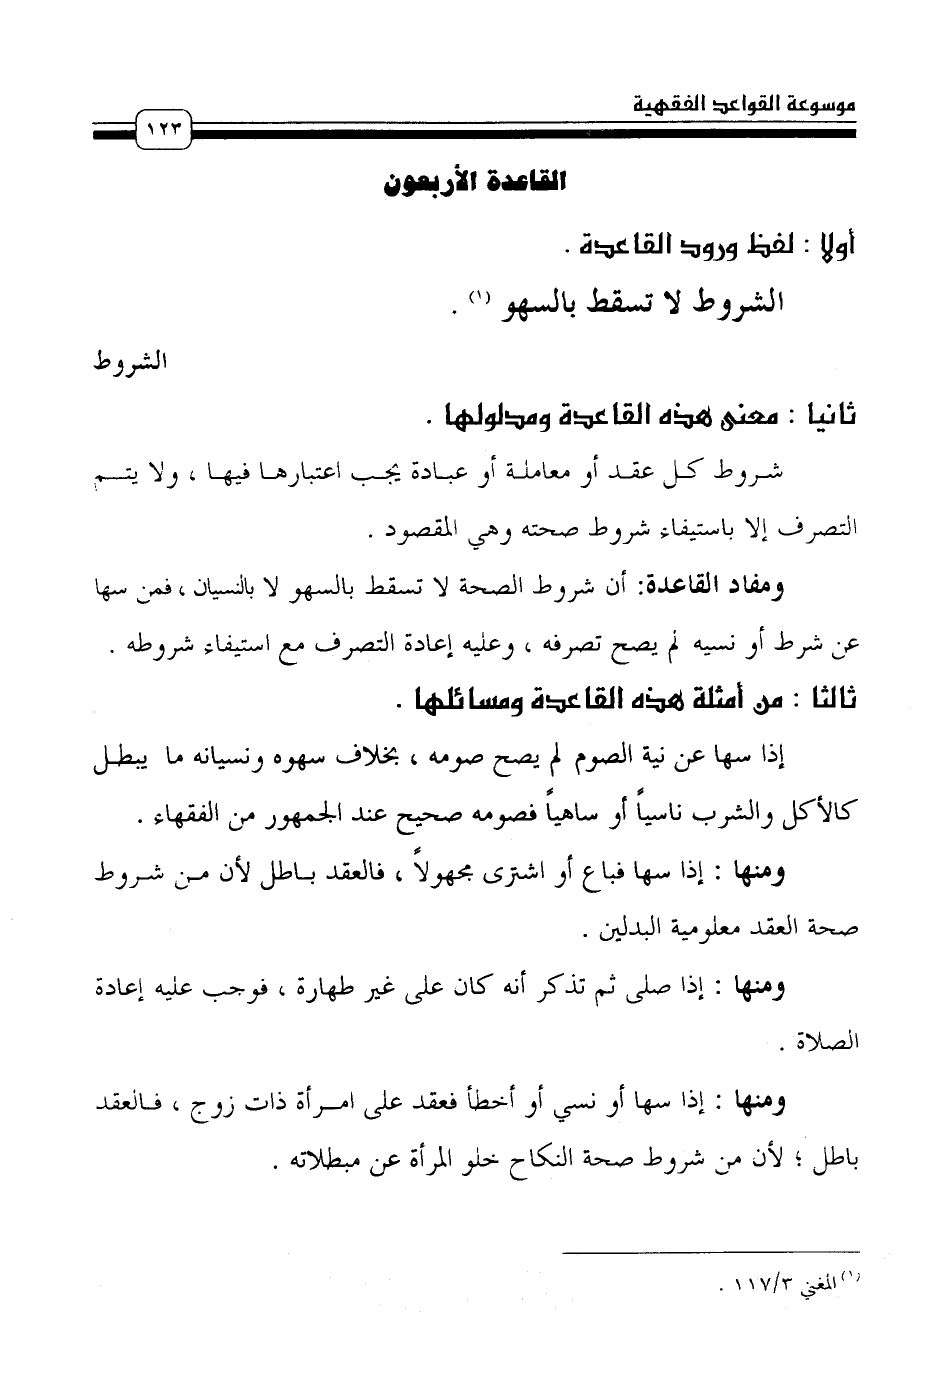 موسوعة القواعد الفقهية
١٢٣
القاعدة الأربعون
أولا : لفظ ورود القاعدة .
الشروط لا تسقط بالسهو (١) .
الشروط
ثانيا : معنى هذه القاعدة ومدلولها .
شروط كل عقد أو معاملة أو عبادة يجب اعتبارها فيها ، ولا يتم
التصرف إلا باستيفاء شروط صحته وهي المقصود .
ومفاد القاعدة: أن شروط الصحة لا تسقط بالسهو لا بالنسيان ، فمن سها
عن شرط أو نسيه لم يصح تصرفه ، وعليه إعادة التصرف مع استيفاء شروطه .
ثالثا : من أمثلة هذه القاعدة ومسائلها .
إذا سها عن نية الصوم لم يصح صومه ، بخلاف سهوه ونسيانه ما يبطل
كالأكل والشرب ناسياً أو ساهياً فصومه صحيح عند الجمهور من الفقهاء .
ومنها : إذا سها فباع أو اشترى مجهولاً ، فالعقد باطل لأن من شروط
صحة العقد معلومية البدلين .
ومنها : إذا صلى ثم تذكر أنه كان على غير طهارة ، فوجب عليه إعادة
الصلاة .
ومنها : إذا سها أو نسي أو أخطأ فعقد على امرأة ذات زوج ، فالعقد
باطل ؛ لأن من شروط صحة النكاح خلو المرأة عن مبطلاته .
(١) المغني ١١٧/٣ .